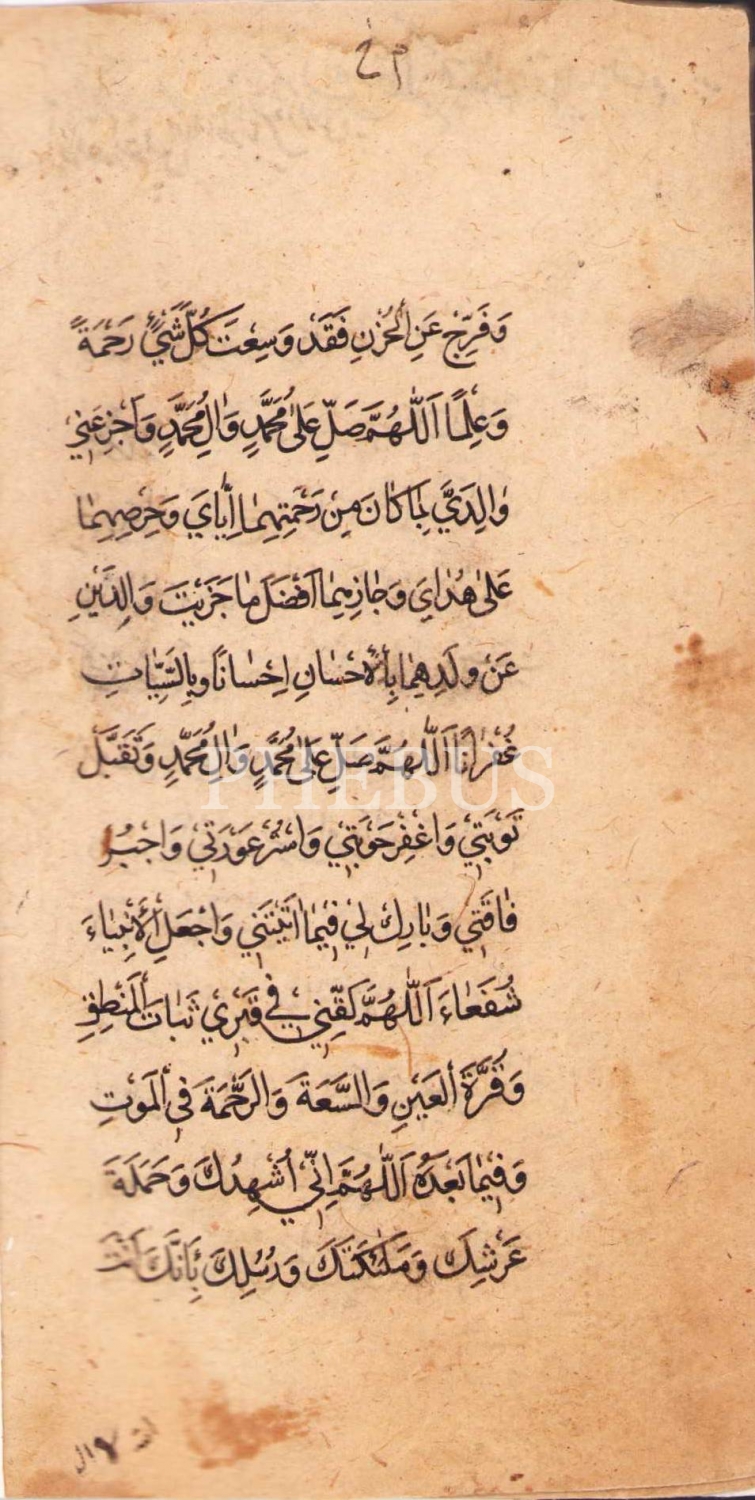 وَفَرِّجْ عَنِ الْحُزْنِ فَقَدْ وَسِعْتَ كُلَّ شَيْءٍ رَحْمَةً
وَعِلْمًا اَللّٰهُمَّ صَلِّ عَلٰى مُحَمَّدٍ وَاٰلِ مُحَمَّدٍ وَاَجْزِ عَنِّي
وٰالِدَيَّ لِمٰا كٰانَ مِنْ رَحْمَتِهِمٰا اِيّٰايَ وَحِرْصِهِمٰا
عَلٰى هُدٰايَ وَجٰازِهِمٰا اَفْضَلَ مٰا جَزَيْتَ وَالِدَيْنِ
عَنْ وَلَدِهِمٰا بِالْاِحْسٰانِ اِحْسٰانًا وَبِالسَّيِّاٰتِ
غُفْرٰانًا اَللّٰهُمَّ صَلِّ عَلٰى مُحَمَّدٍ وَاٰلِ مُحَمَّدٍ وَتَقَبَّلْ
تَوْبَتِي وَاغْفِرْ حَوْبَتِي وَاسْتُرْ عَوْرَتِي وَاجْبُرْ
فٰاقَتِي وَبٰارِكْ لِي فِيمٰا اٰتَيْتَنِي وَاجْعَلِ الْاَنْبِيٰاءَ
شُفَعٰاءَ اَللّٰهُمَّ لَقِّنِّي فِي قَبْرِي ثَبٰاتَ الْمَنْطِقِ
وَقُرَّةَ الْعَيْنِ وَالسَّعَةَ وَالرَّحْمَةَ فِي الْمَوْتِ
وَفِيمٰا بَعْدَهُ اَللّٰهُمَّ اِنِّي اُشْهِدُكَ وَحَمَلَةَ
عَرْشِكَ وَمَلٰئِكَتَكَ وَرُسُلِكَ بِاَنَّكَ اَنْتَ
PHEBUS